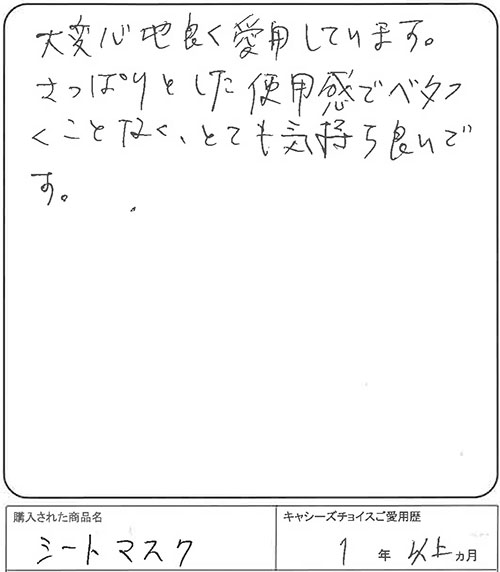 大変心地良く愛用しています。
さっぱりとした使用感でベタつ
くことなく、とても気持ち良いで
す。
購入された商品名
キャシーズチョイスご愛用歴
シートマスク
1年以上ヵ月